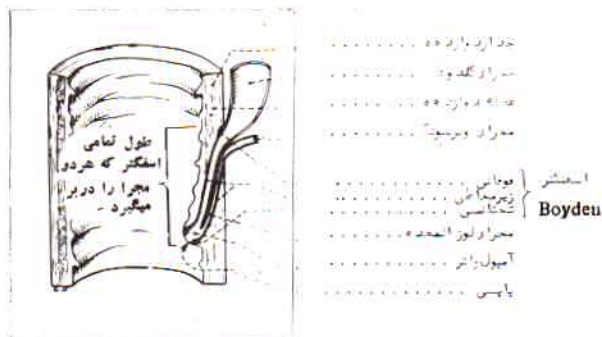 طول تمامی
اسفنکتر که هردو
مجرا را دربر
میگیرد -
جدار دوازده
مجرای کلدوک
عضله دوازده
مجرای ویرسونگ
فوقانی
زیرمخاطی
تحتانی
اسفنکتر
Boyden
مجرای لوزالمعده
آمپول واتر
پاپی